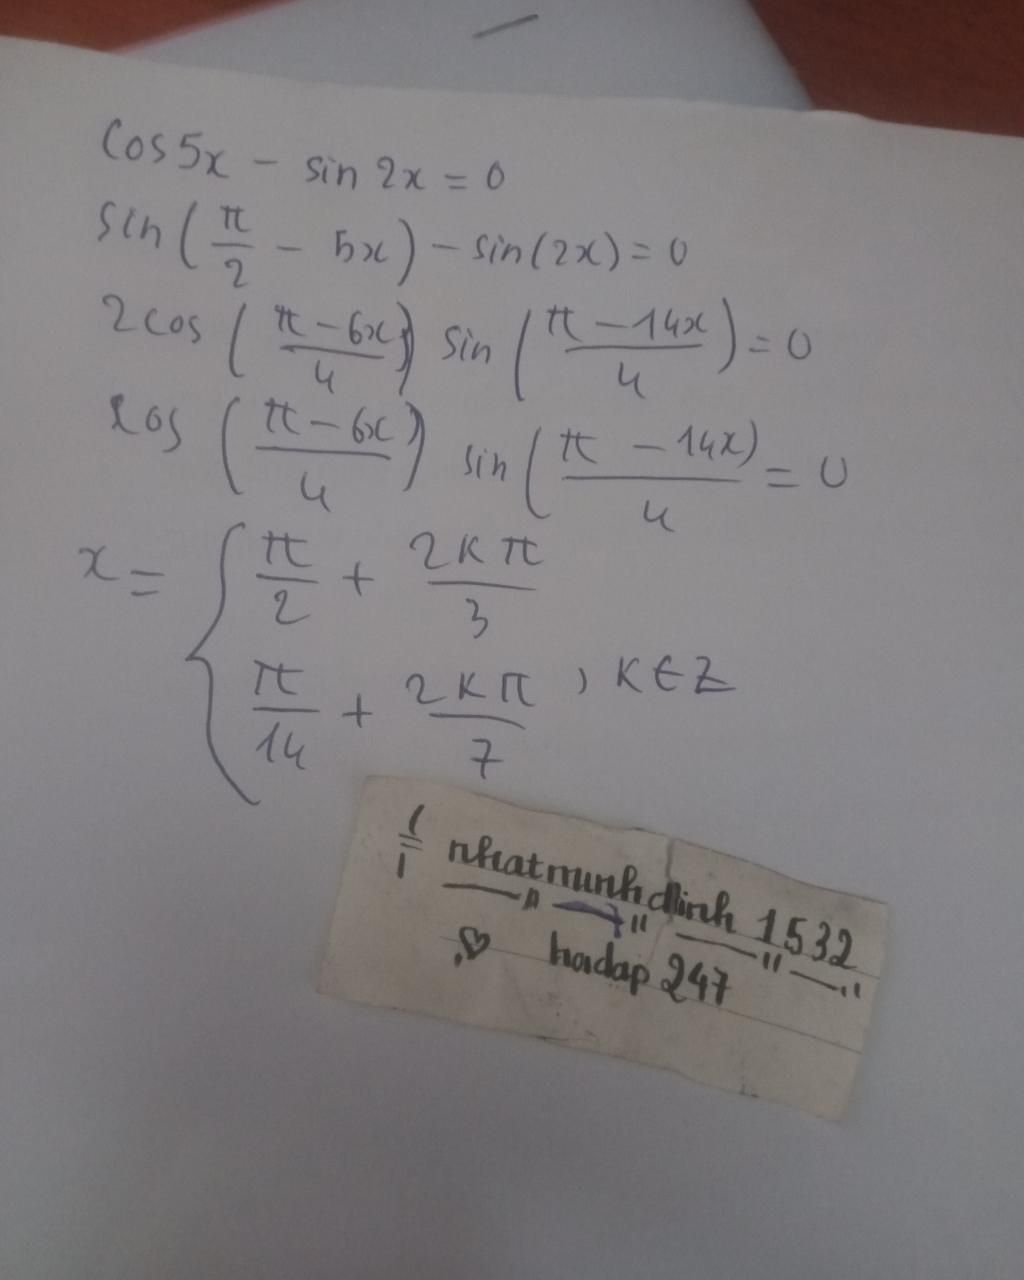 cos 5x - sin 2x = 0
sin (π/2 - 5x) - sin(2x) = 0
2cos ((π - 6x)/4) sin ((π - 14x)/4) = 0
cos ((π - 6x)/4) sin ((π - 14x)/4) = 0
x = { π/2 + 2kπ/3
π/14 + 2kπ/7 , k ∈ Z
nhatminhdinh 1532
hoidap 247